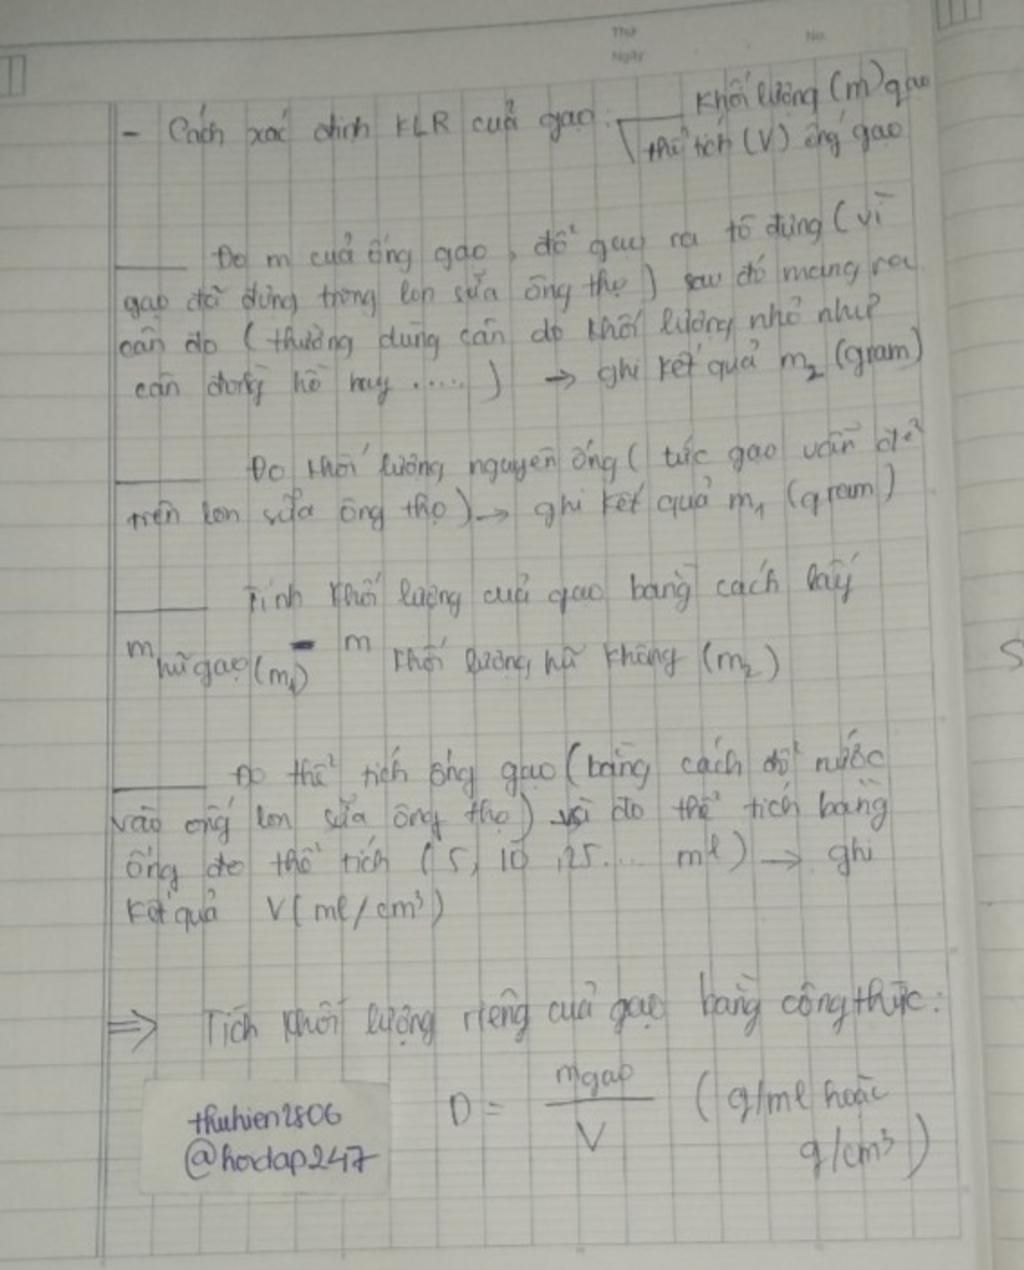 Thứ
Ngày
No.
- Cách xác định KLR của gạo: Khối lượng (m) gạo
thể tích (V) ống gạo
Đo m của ống gạo, đổ gạo ra tô đựng (vì
gạo đã đựng trong lon sữa ông thọ) sau đó mang ra
cân đo (thường dùng cân đo khối lượng nhỏ như
cân đồng hồ hay .....) → ghi kết quả m₂ (gram)
Đo khối lượng nguyên ống (tức gạo vẫn để
trên lon sữa ông thọ) → ghi kết quả m₁ (gram)
Tính khối lượng của gạo bằng cách lấy
m hũ gạo (m₁) - m khối lượng hũ không (m₂)
Đo thể tích ống gạo (bằng cách đổ nước
vào ống lon sữa ông thọ) và đo thể tích bằng
ống đo thể tích (5, 10, 25... ml) → ghi
kết quả V (ml/cm³)
⇒ Tích khối lượng riêng của gạo bằng công thức:
D = mgạo / V (g/ml hoặc
g/cm³)
thuhien2806
@hoidap247